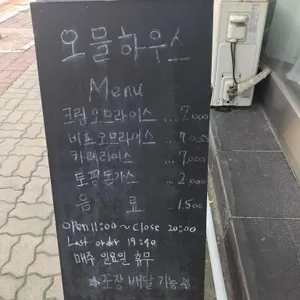 오믈하우스
Menu
크림오므라이스 ... 7,000
비프오므라이스 ... 9,000
카레라이스 ... 7,000
토핑돈가스 ... 2,000
음 료 ... 1,500
open 11:00 ~ close 20:00
Last order 19:40
매주 일요일 휴무
☆포장 배달 가능☆